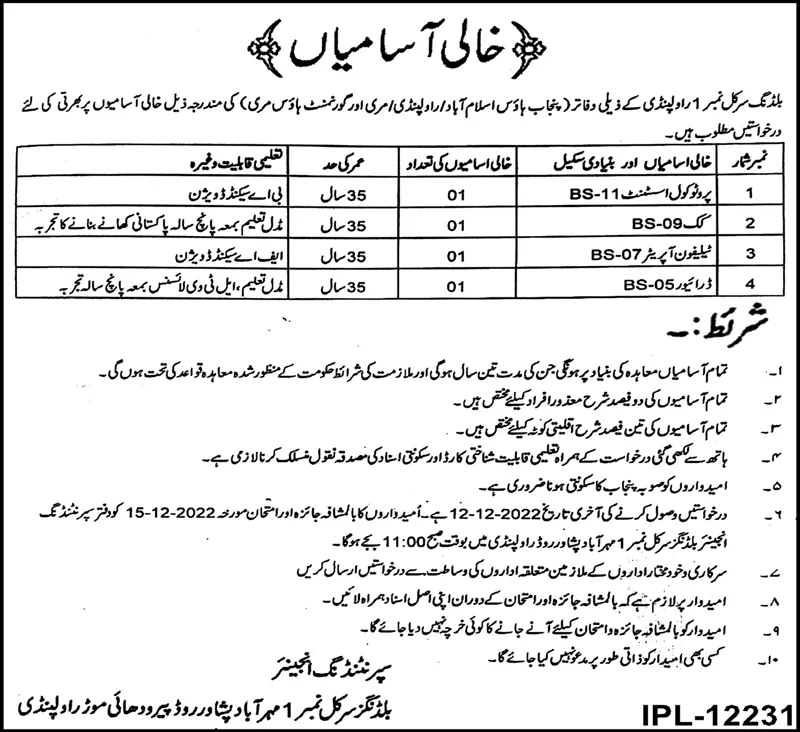 خالی آسامیاں
بلڈنگ سرکل نمبر 1 راولپنڈی کے ذیلی دفاتر (پنجاب ہاؤس اسلام آباد/راولپنڈی/مری اور گورنمنٹ ہاؤس مری) کی مندرجہ ذیل خالی آسامیوں پر بھرتی کی لئے
درخواستیں مطلوب ہیں۔
نمبر شمار خالی اسامیاں اور بنیادی سکیل خالی اسامیوں کی تعداد عمر کی حد تعلیمی قابلیت وغیرہ
1 پروٹوکول اسسٹنٹ BS-11 01 35 سال بی اے سیکنڈ ڈویژن
2 کک BS-09 01 35 سال مڈل تعلیم بمعہ پانچ سالہ پاکستانی کھانے بنانے کا تجربہ
3 ٹیلیفون آپریٹر BS-07 01 35 سال ایف اے سیکنڈ ڈویژن
4 ڈرائیور BS-05 01 35 سال مڈل تعلیم، ایل ٹی وی لائسنس بمعہ پانچ سالہ تجربہ
شرائط:۔
۱۔ تمام آسامیاں معاہدہ کی بنیاد پر ہونگی جن کی مدت تین سال ہوگی اور ملازمت کی شرائط حکومت کے منظور شدہ معاہدہ قواعد کی تحت ہوں گی۔
۲۔ تمام آسامیوں کی دو فیصد شرح معذور افراد کیلئے مختص ہیں۔
۳۔ تمام آسامیوں کی تین فیصد شرح اقلیتی کوٹہ کیلئے مختص ہیں۔
۴۔ ہاتھ سے لکھی گئی درخواست کے ہمراہ تعلیمی قابلیت شناختی کارڈ اور سکونتی اسناد کی مصدقہ نقول منسلک کرنا لازمی ہے۔
۵۔ امیدواروں کو صوبہ پنجاب کا سکونتی ہونا ضروری ہے۔
۶۔ درخواستیں وصول کرنے کی آخری تاریخ 12-12-2022 ہے۔ اُمیدواروں کا بالمشافہ جائزہ اور امتحان مورخہ 15-12-2022 کو دفتر سپرنٹنڈنگ
انجینئر بلڈنگز سرکل نمبر 1 مہر آباد پشاور روڈ راولپنڈی میں بوقت صبح 11:00 بجے ہوگا۔
۷۔ سرکاری و خود مختار اداروں کے ملازمین متعلقہ اداروں کی وساطت سے درخواستیں ارسال کریں
۸۔ امیدوار پر لازم ہے کہ بالمشافہ جائزہ اور امتحان کے دوران اپنی اصل اسناد ہمراہ لائیں۔
۹۔ امیدوار کو بالمشافہ جائزہ و امتحان کیلئے آنے جانے کا کوئی خرچہ نہیں دیا جائے گا۔
۱۰۔ کسی بھی امیدار کو ذاتی طور پر مدعو نہیں کیا جائے گا۔
سپرنٹنڈنگ انجینئر
بلڈنگز سرکل نمبر 1 مہر آباد پشاور روڈ پیرودھائی موڑ راولپنڈی
IPL-12231